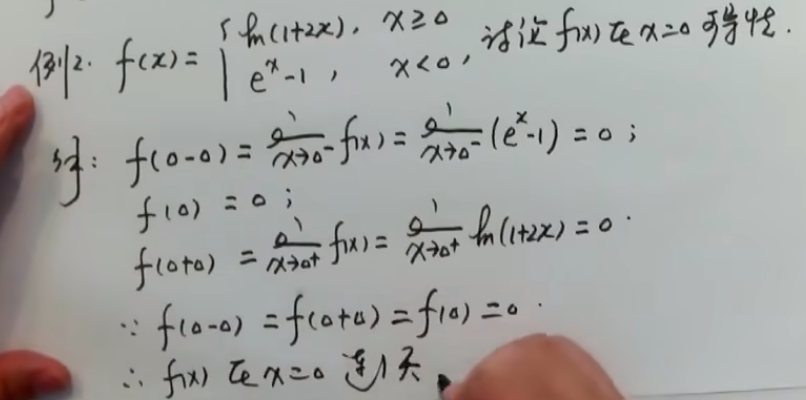 例2. f(x) = { ln(1+2x), x≥0
e^x-1, x<0, 讨论 f(x) 在 x=0 可导性.
解: f(0-0) = lim x→0⁻ f(x) = lim x→0⁻ (e^x-1) = 0 ;
f(0) = 0 ;
f(0+0) = lim x→0⁺ f(x) = lim x→0⁺ ln(1+2x) = 0 .
∵ f(0-0) = f(0+0) = f(0) = 0 .
∴ f(x) 在 x=0 连续